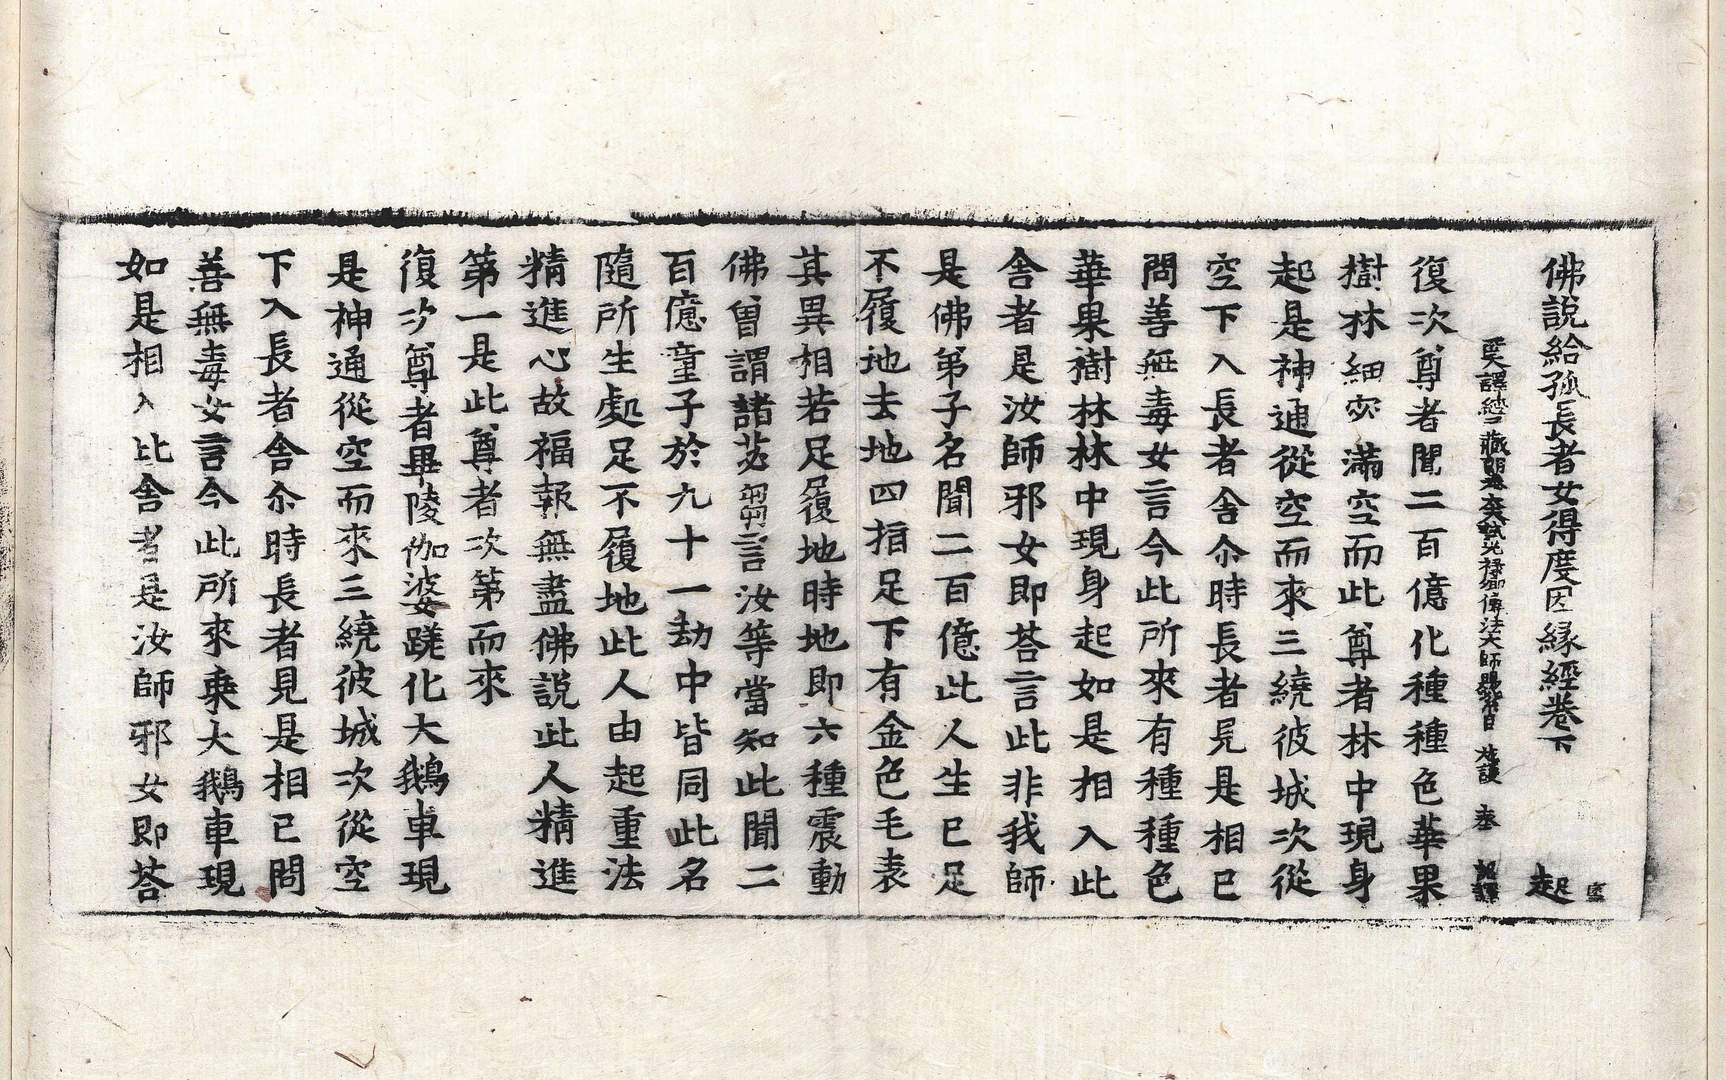 佛説給孤長者女得度因縁經卷下　起
西天譯經三藏朝奉大夫試光禄卿傳法大師賜紫臣　施護　奉　詔譯
復次尊者聞二百億化種種色華果
樹林細密滿空而此尊者林中現身
起是神通從空而來三繞彼城次從
空下入長者舍尒時長者見是相已
問善無毒女言今此所來有種種色
華果樹林林中現身起如是相入此
舍者是汝師邪女即荅言此非我師
是佛弟子名聞二百億此人生已足
不履地去地四指足下有金色毛表
其異相若足履地時地即六種震動
佛曾謂諸苾芻言汝等當知此聞二
百億童子於九十一劫中皆同此名
隨所生處足不履地此人由起重法
精進心故福報無盡佛説此人精進
第一是此尊者次第而來
復次尊者畢陵伽婆蹉化大鵝車現
是神通從空而來三繞彼城次從空
下入長者舍尒時長者見是相已問
善無毒女言今此所來乘大鵝車現
如是相入此舍者是汝師邪女即荅